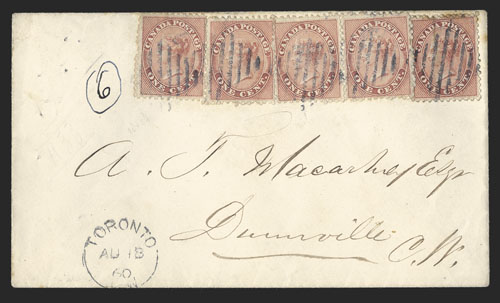 CANADA POSTAGE CANADA POSTAGE CANADA POSTAGE CANADA POSTAGE CANADA POSTAGE
ONE CENT ONE CENT ONE CENT ONE CENT ONE CENT
6
A. T. Macartney Esqr
Dunnville
C.W.
TORONTO
AU 18
60